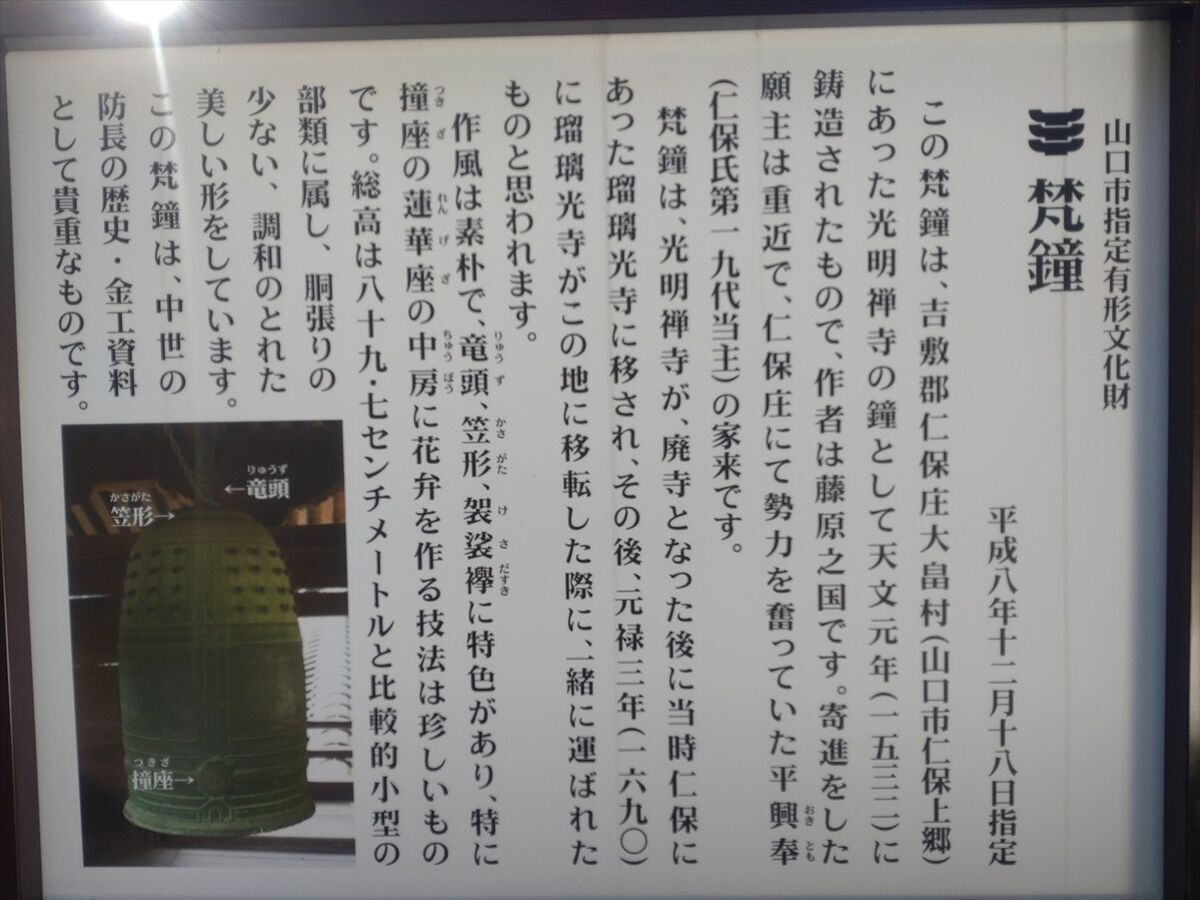 山口市指定有形文化財
梵鐘
平成八年十二月十八日指定
この梵鐘は、吉敷郡仁保庄大畠村(山口市仁保上郷)
にあった光明禅寺の鐘として天文元年(一五三二)に
鋳造されたもので、作者は藤原之国です。寄進をした
願主は重近で、仁保庄にて勢力を奮っていた平興奉
おき とも
(仁保氏第一九代当主)の家来です。
梵鐘は、光明禅寺が、廃寺となった後に当時仁保に
あった瑠璃光寺に移され、その後、元禄三年(一六九〇)
に瑠璃光寺がこの地に移転した際に、一緒に運ばれた
ものと思われます。
作風は素朴で、竜頭、笠形、袈裟襷に特色があり、特に
りゅう ず かさ がた け さ だすき
撞座の蓮華座の中房に花弁を作る技法は珍しいもの
つき ざ れん げ ざ ちゅう ぼう
です。総高は八十九・七センチメートルと比較的小型の
部類に属し、胴張りの
少ない、調和のとれた
美しい形をしています。
この梵鐘は、中世の
防長の歴史・金工資料
として貴重なものです。
りゅうず
←竜頭
かさがた
笠形→
つきざ
撞座→